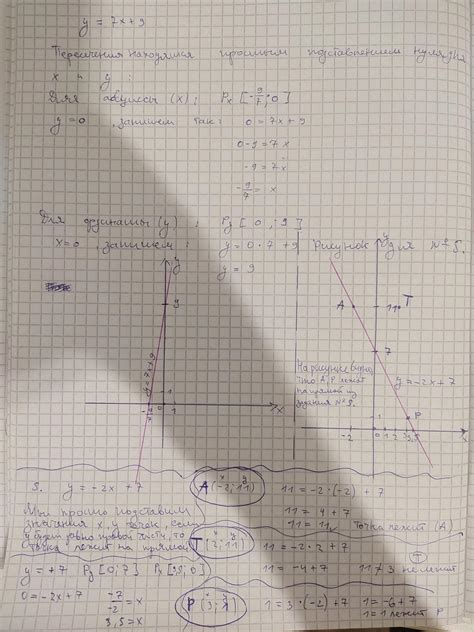 y = 7x + 9
Пересечения находятся простым подставлением нуля для
x и y :
Для абциссы (x) : Px [-9/7 ; 0]
y = 0 , запишем так: 0 = 7x + 9
0 - 9 = 7x
-9 = 7x
-9/7 = x
Для ординаты (y) : Py [0 ; 9]
x = 0 , запишем : y = 0 · 7 + 9
y = 9
Рисунок для №5.
y
9
y = 7x + 9
1
1
x
y
A
11
T
7
На рисунке видно,
что A, P лежат
на прямой из
задания
y = -2x + 7
1
P
-2
0 1 2 3 3,5
x
5. y = -2x + 7
Мы просто подставим
значения x, y точек, если
y будет равно правой части, то
точка лежит на прямой.
y = +7 Py [0 ; 7] Px [3,5 ; 0]
0 = -2x + 7
-7/-2 = x
3,5 = x
x y
A (-2 ; 11)
11 = -2 · (-2) + 7
11 = 4 + 7
11 = 11, точка лежит (A)
x y
T (2 ; 11)
11 = -2 · 2 + 7
11 = -4 + 7
11 ≠ 3 не лежит (T)
x y
P (3 ; 1)
1 = 3 · (-2) + 7
1 = -6 + 7
1 = 1 лежит P